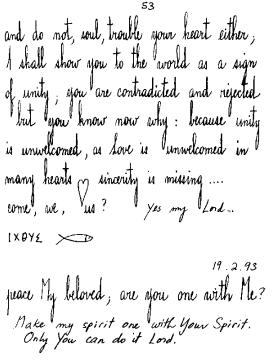 53
and do not, soul, trouble your heart either;
I shall show you to the world as a sign
of unity; you are contradicted and rejected
but you know now why : because unity
is unwelcomed, as Love is unwelcomed in
many hearts sincerity is missing ....
come, we, us? Yes my Lord...
ΙΧΘΥΣ
19.2.93
peace My beloved; are you one with Me?
Make my spirit one with Your Spirit.
Only You can do it Lord.